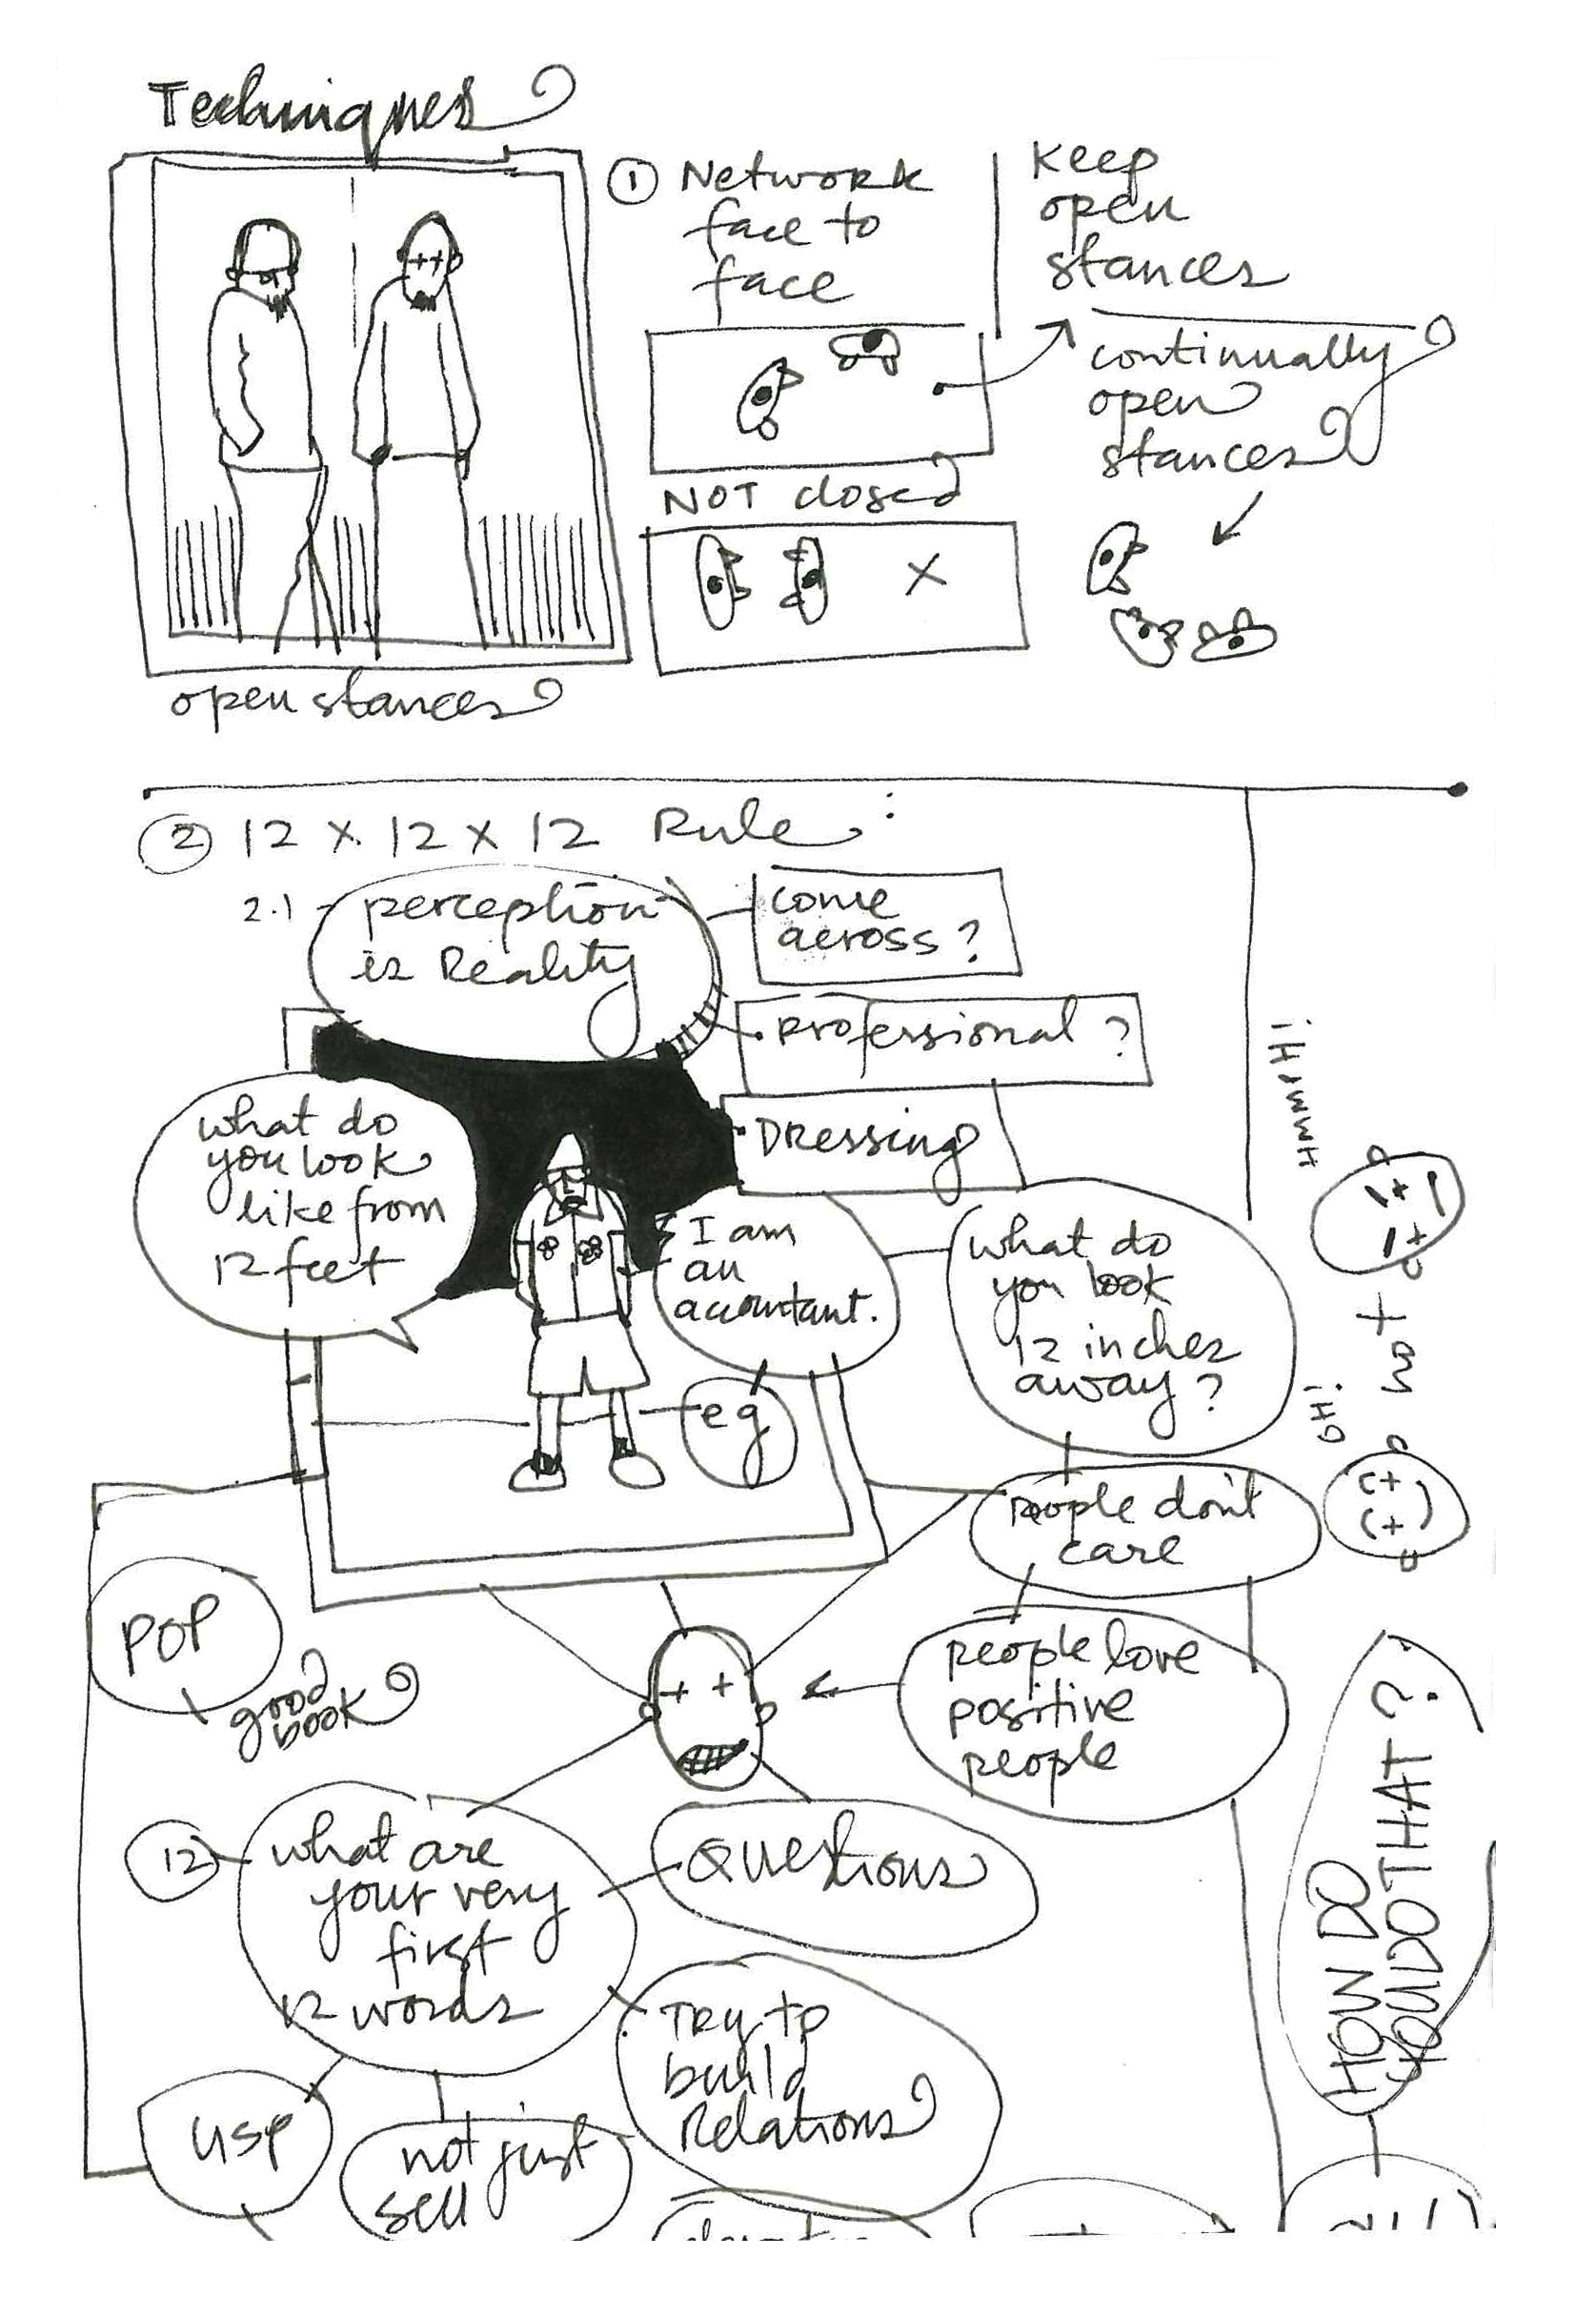 Techniques
① Network
face to
face
Keep
open
stances
continually
open
stances
NOT closed
X
open stances
② 12 x 12 x 12 Rule:
2.1
perception
is Reality
come
across?
Professional?
Dressing
what do
you look
like from
12 feet
I am
an
acountant.
eg
what do
you look
12 inches
away?
people don't
care
people love
positive
people
POP
good
book
12
what are
your very
first
12 words
Questions
Try to
build
Relations
USP
not just
sell
Hmm!
Hi!
HOW DO
YOU DO THAT?